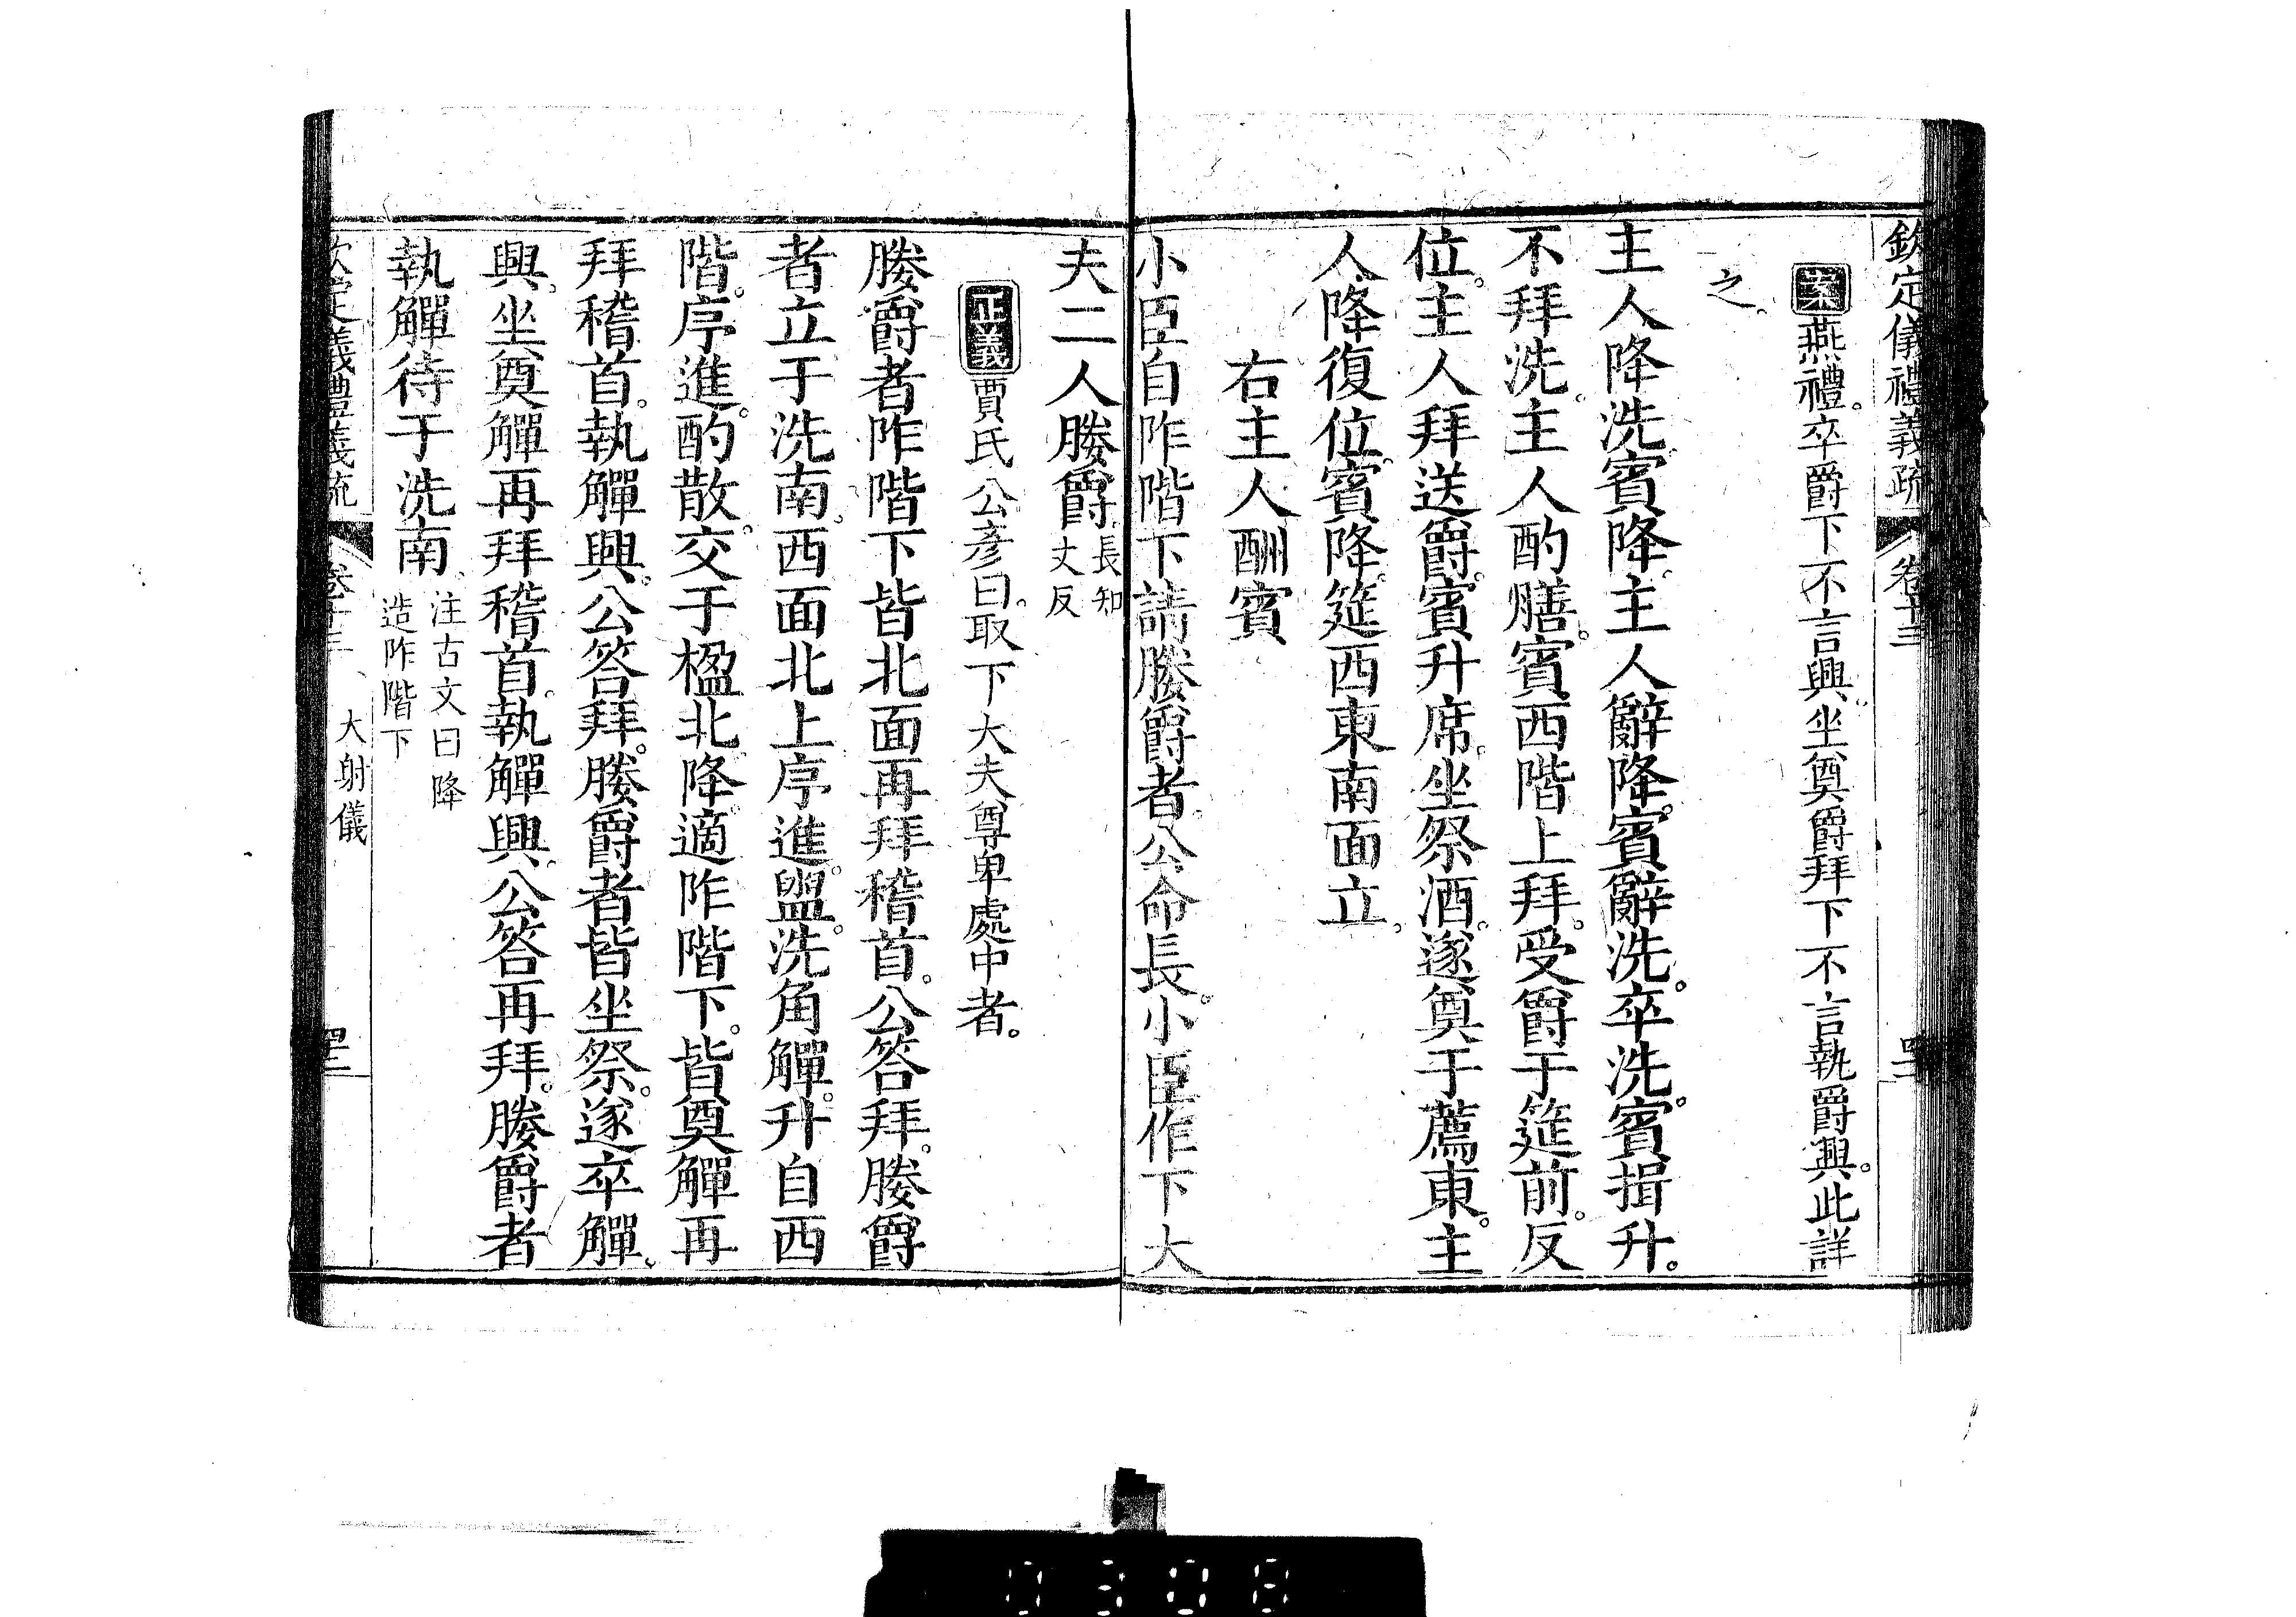 欽定儀禮義疏 卷十三 四三
案燕禮。卒爵下不言興。坐奠爵拜下不言執爵興。此詳
之。
主人降洗。賓降。主人辭降。賓辭洗。卒洗。賓揖升。
不拜洗。主人酌膳。賓西階上拜。受爵于筵前。反
位。主人拜送爵。賓升席。坐祭酒。遂奠于薦東。主
人降復位。賓降。筵西東南面立。
右主人酬賓
小臣自阼階下請媵爵者。公命長。小臣作下大
夫二人媵爵。長知丈反
正義賈氏公彥曰。取下大夫尊卑處中者。
媵爵者阼階下皆北面再拜稽首。公答拜。媵爵
者立于洗南。西面北上序進。盥。洗角觶。升自西
階。序進。酌散。交于楹北。降。適阼階下。皆奠觶再
拜稽首。執觶興。公答拜。媵爵者皆坐祭。遂卒觶。
興。坐奠觶再拜稽首。執觶興。公答再拜。媵爵者
執觶待于洗南。注古文曰降造阼階下
欽定義禮義疏 卷十三 大射儀 四三